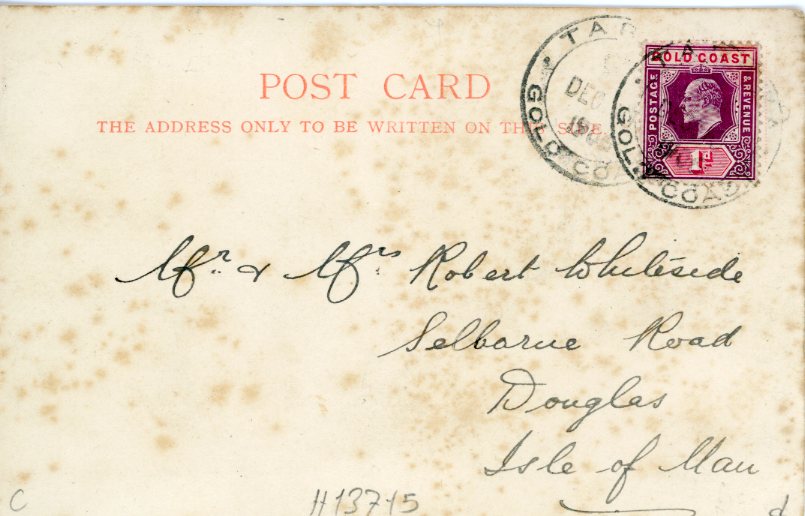 POST CARD
THE ADDRESS ONLY TO BE WRITTEN ON THIS SIDE
GOLD COAST
POSTAGE
& REVENUE
1d
TAR
DEC
GOLD COAST
TA
GOLD COAST
Mr. & Mrs Robert Whiteside
Selborne Road
Douglas
Isle of Man
C
H1375
d